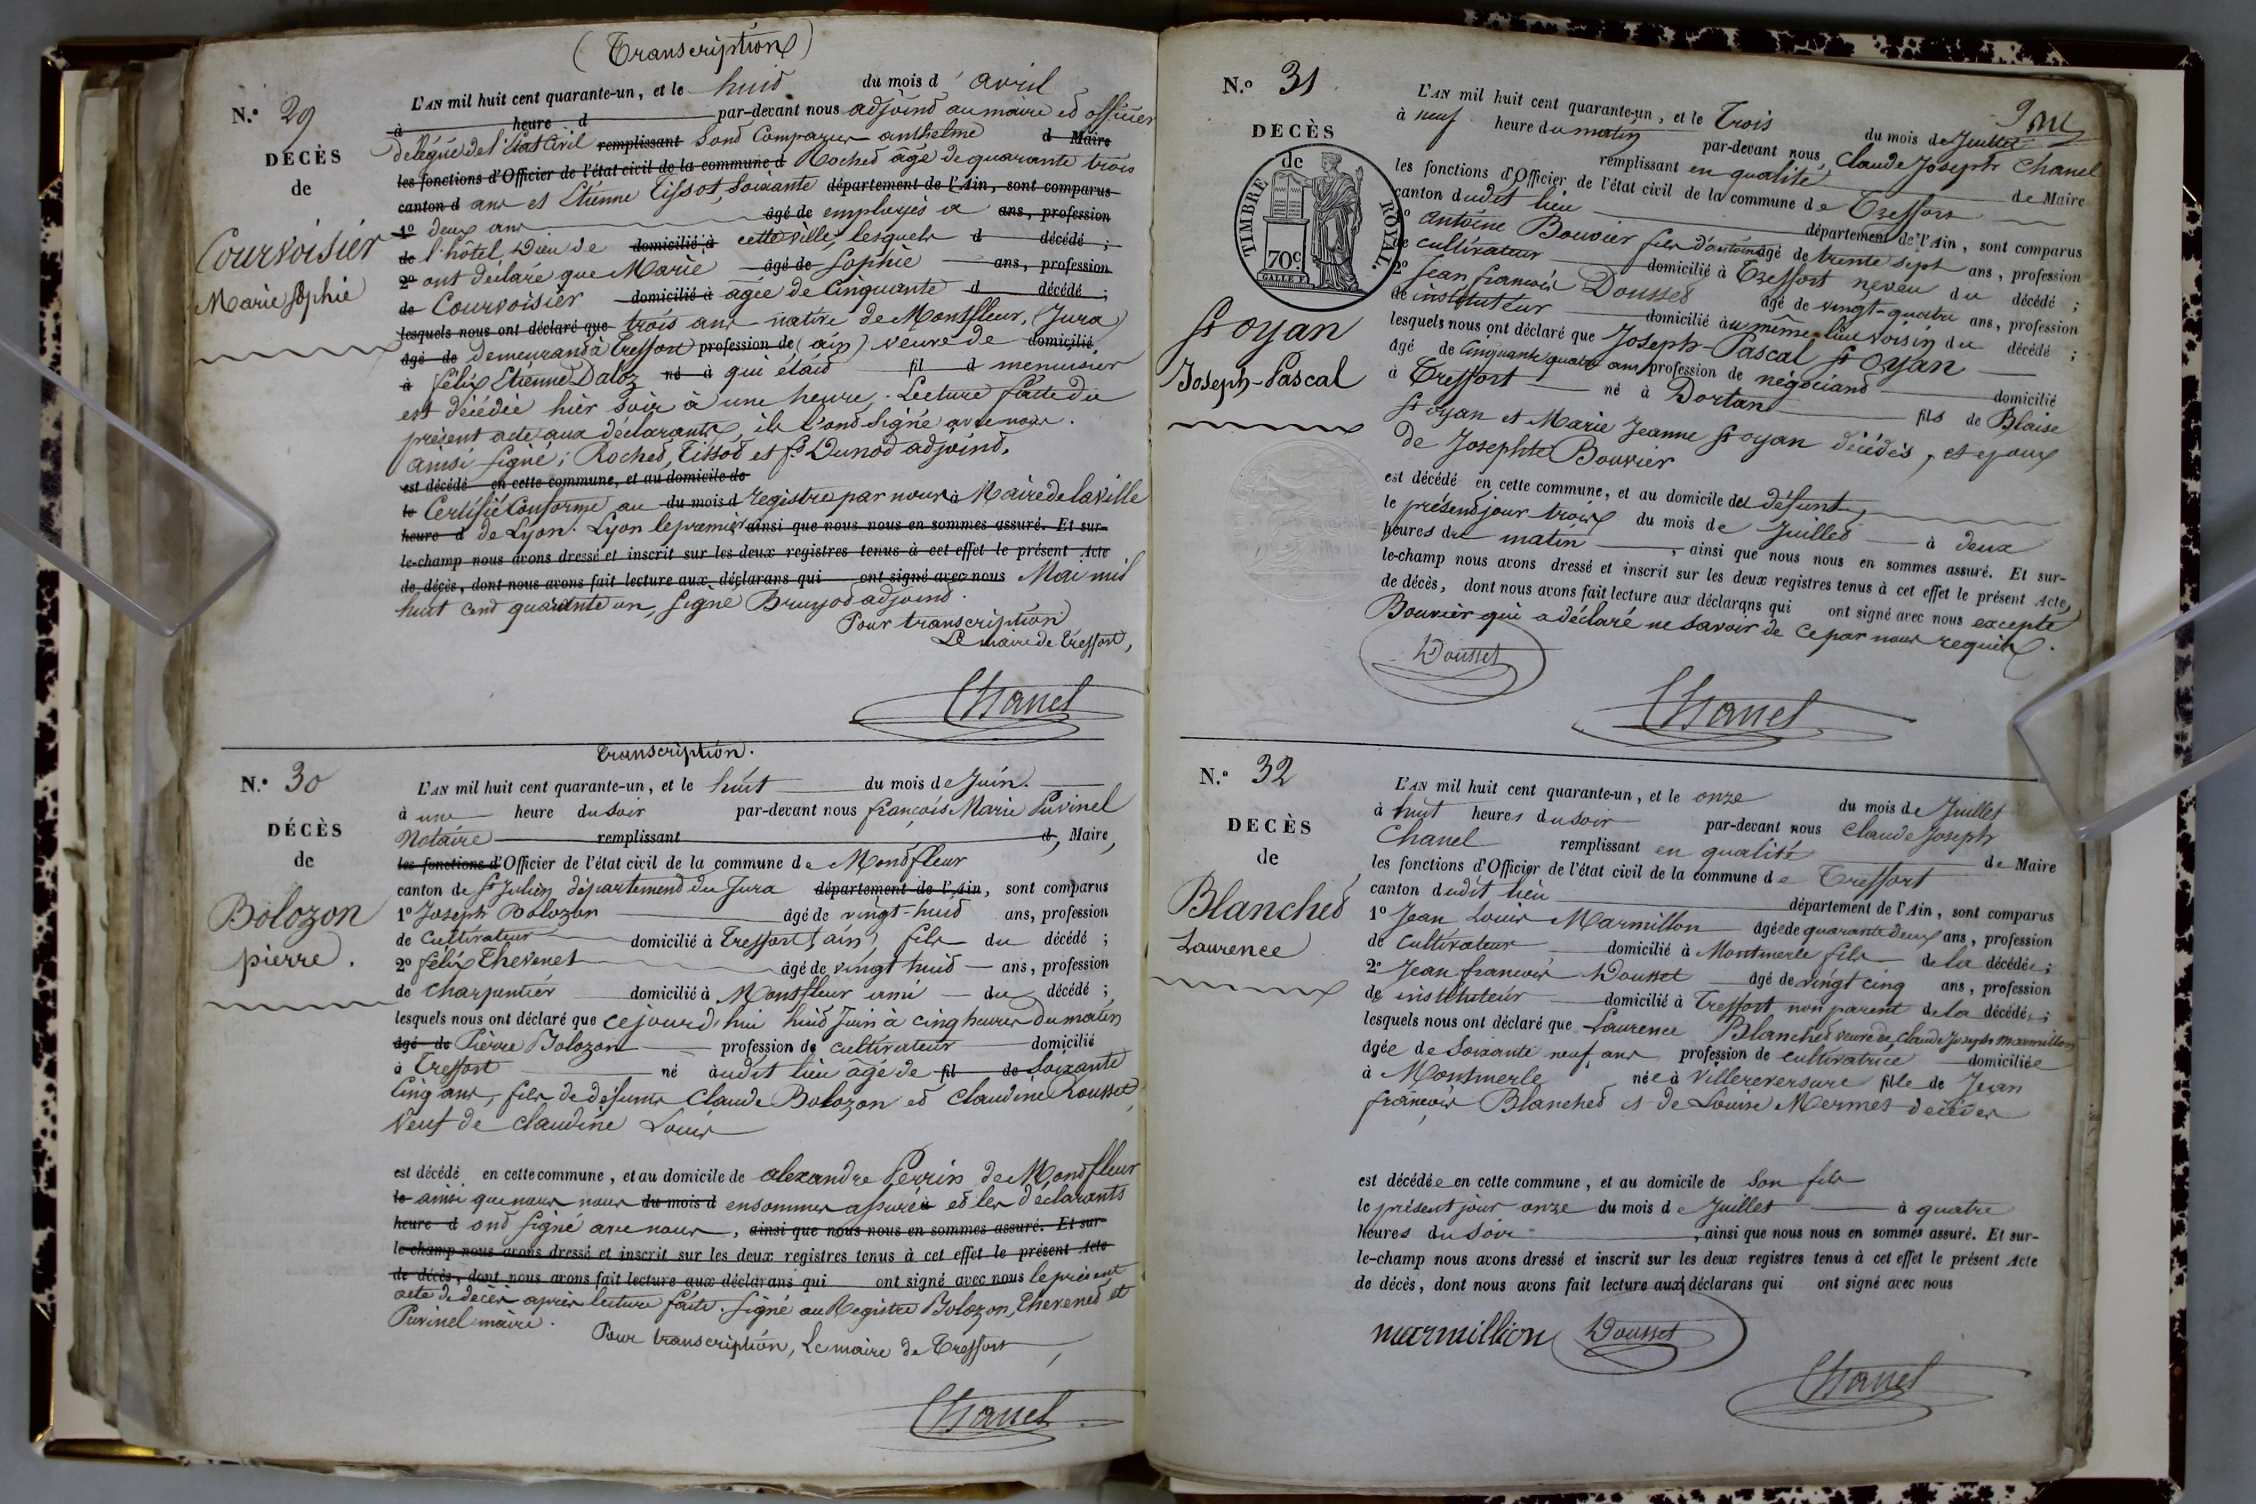 (Transcription)
N.° 29
DÉCÈS
de
Courvoisier
Marie Sophie
L'AN mil huit cent quarante-un, et le huit du mois d'avril
à heure d par-devant nous adjoint au maire et officier
délégué de l'Etat Civil remplissant Sont Comparus anthelme d Maire
les fonctions d'Officier de l'état civil de la commune d Rochet âgé de quarante trois
canton d ans et Etienne Tissot, Soixante département de l'Ain, sont comparus
1° deux ans âgé de employés a ans, profession
de l'hôtel Dieu de domicilié à cette ville, lesquels d décédé ;
2° ont déclaré que Marie âgé de Sophie ans, profession
de Courvoisier domicilié à agée de Cinquante d décédé ;
lesquels nous ont déclaré que trois ans native de Montfleur, (Jura)
âgé de demeurant à Treffort profession de (ain) veuve de domicilié
à félix Etienne Daloz né à qui était fil d menuisier
est décédée hier soir à une heure. Lecture faite du
présent acte aux déclarants, ils l'ont signé avec nous.
ainsi signé ; Rochet, Tissot et f. Dunod adjoint.
est décédé en cette commune, et au domicile de
le Certifié Conforme au du mois d registre par nous à Maire de la ville
heure d de Lyon. Lyon le premier ainsi que nous nous en sommes assuré. Et sur-
le-champ nous avons dressé et inscrit sur les deux registres tenus à cet effet le présent Acte
de décès, dont nous avons fait lecture aux déclarans qui ont signé avec nous Mai mil
huit cent quarante un, signé Bruyod adjoint.
Pour transcription
Le maire de Treffort,
Chanel
Transcription.
N.° 30
DÉCÈS
de
Bolozon
pierre.
L'AN mil huit cent quarante-un, et le huit du mois de Juin.
à une heure du soir par-devant nous françois Marie Puvinel
Notaire remplissant d, Maire,
les fonctions d'Officier de l'état civil de la commune de Montfleur
canton de St Julien département du Jura département de l'Ain, sont comparus
1° Joseph Bolozon âgé de vingt-huit ans, profession
de Cultivateur domicilié à Treffort (ain) fils du décédé ;
2° félix Thevenet âgé de vingt huit ans, profession
de charpentier domicilié à Montfleur ami du décédé ;
lesquels nous ont déclaré que cejourd'hui huit Juin à cinq heures du matin
âgé de Pierre Bolozon profession de cultivateur domicilié
à Treffort né audit lieu âgé de fil de Soixante
Cinq ans, fils de défunts Claude Bolozon et Claudine Rousset
Veuf de claudine Louis
est décédé en cette commune, et au domicile de alexandre Perrin de Montfleur
le ainsi que nous nous du mois d en sommes assuré et les déclarants
heure d ont signé avec nous, ainsi que nous nous en sommes assuré. Et sur-
le-champ nous avons dressé et inscrit sur les deux registres tenus à cet effet le présent Acte
de décès, dont nous avons fait lecture aux déclarans qui ont signé avec nous le présent
acte de décès après lecture faite. signé au Registre Bolozon, Thevenet et
Puvinel maire.
Pour transcription, Le maire de Treffort
Chanel
N.° 31
DÉCÈS
de
TIMBRE ROYAL.
70c.
St oyan
Joseph-Pascal
L'AN mil huit cent quarante-un, et le Trois du mois de Juillet
à neuf heure du matin par-devant nous, Claude Joseph Chanel
remplissant en qualité de Maire
les fonctions d'Officier de l'état civil de la commune de Treffort
canton dudit lieu département de l'Ain, sont comparus
1° antoine Bouvier fils d'antoine âgé de trente sept ans, profession
de cultivateur domicilié à Treffort neveu du décédé ;
2° Jean françois Dousset âgé de vingt-quatre ans, profession
de instituteur domicilié au même lieu voisin du décédé ;
lesquels nous ont déclaré que Joseph-Pascal St oyan
âgé de cinquante quatre ans profession de négociant domicilié
à Treffort né à Dortan fils de Blaise
St oyan et Marie Jeanne St oyan décédés, et époux
de Josephte Bouvier
est décédé en cette commune, et au domicile del défunt,
le présent jour trois du mois de Juillet à deux
heures du matin, ainsi que nous nous en sommes assuré. Et sur-
le-champ nous avons dressé et inscrit sur les deux registres tenus à cet effet le présent Acte
de décès, dont nous avons fait lecture aux déclarans qui ont signé avec nous excepté
Bouvier qui a déclaré ne savoir de ce par nous requis.
Dousset
Chanel
N.° 32
DÉCÈS
de
Blanchet
Laurence
L'AN mil huit cent quarante-un, et le onze du mois de Juillet
à huit heures du soir par-devant nous Claude Joseph
Chanel remplissant en qualité de Maire
les fonctions d'Officier de l'état civil de la commune de Treffort
canton dudit lieu département de l'Ain, sont comparus
1° Jean Louis Marmillon âgé de quarante deux ans, profession
de cultivateur domicilié à Montmerle fils de la décédée ;
2° Jean françois Dousset âgé de vingt cinq ans, profession
de instituteur domicilié à Treffort non parent de la décédée ;
lesquels nous ont déclaré que Laurence Blanchet veuve de Claude Joseph Marmillon
âgée de Soixante neuf ans profession de cultivatrice domiciliée
à Montmerle née à Villereversure fille de Jean
françois Blanchet et de Louise Mermet décédés
est décédée en cette commune, et au domicile de son fils
le présent jour onze du mois de Juillet à quatre
heures du soir, ainsi que nous nous en sommes assuré. Et sur-
le-champ nous avons dressé et inscrit sur les deux registres tenus à cet effet le présent Acte
de décès, dont nous avons fait lecture aux déclarans qui ont signé avec nous
marmillion Dousset
Chanel